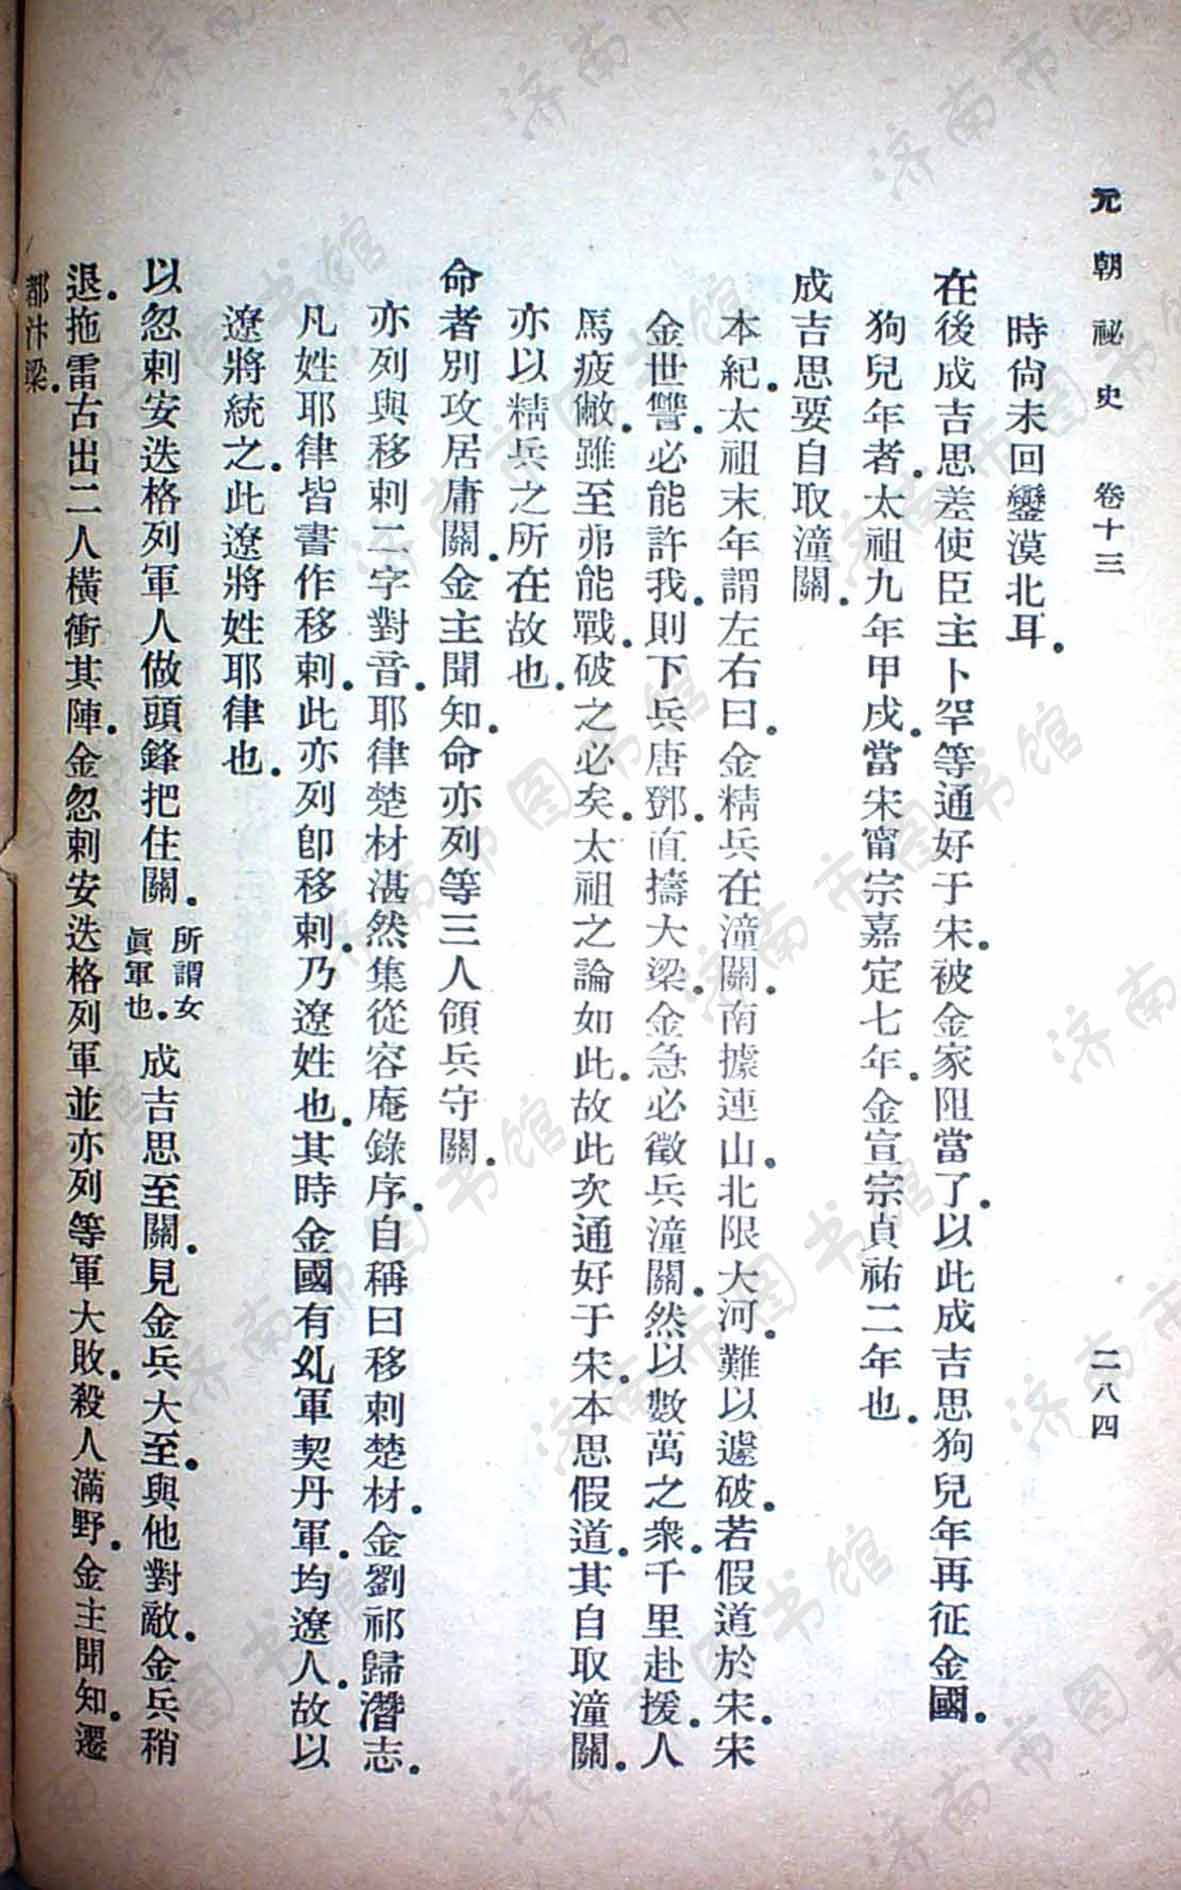 元朝祕史 卷十三 二八四
時尙未回鑾漠北耳。
在後成吉思差使臣主卜罕等通好于宋。被金家阻當了。以此成吉思狗兒年再征金國。
狗兒年者。太祖九年甲戌。當宋甯宗嘉定七年。金宣宗貞祐二年也。
成吉思要自取潼關。
本紀。太祖末年謂左右曰。金精兵在潼關。南據連山。北限大河。難以遽破。若假道於宋。宋
金世讐。必能許我。則下兵唐鄧。直擣大梁。金急必徵兵潼關。然以數萬之衆。千里赴援。人
馬疲敝。雖至弗能戰。破之必矣。太祖之論如此。故此次通好于宋。本思假道。其自取潼關。
亦以精兵之所在故也。
命者別攻居庸關。金主聞知。命亦列等三人領兵守關。
亦列與移剌二字對音。耶律楚材湛然集從容庵錄序。自稱曰移剌楚材。金劉祁歸潛志。
凡姓耶律皆書作移剌。此亦列卽移剌。乃遼姓也。其時金國有乣軍契丹軍。均遼人。故以
遼將統之。此遼將姓耶律也。
以忽剌安迭格列軍人做頭鋒把住關。所謂女眞軍也。成吉思至關。見金兵大至。與他對敵。金兵稍
退。拖雷古出二人橫衝其陣。金忽剌安迭格列軍並亦列等軍大敗。殺人滿野。金主聞知。遷
都汴梁。
濟南市图书馆